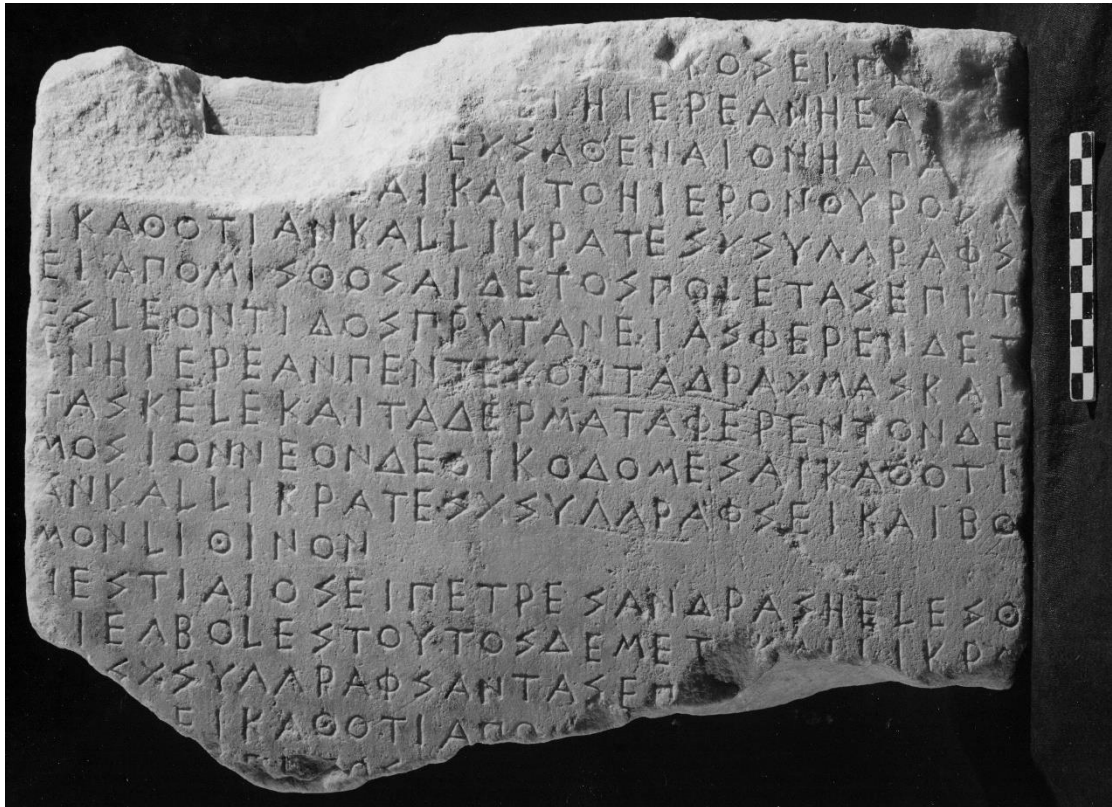 ΚΟΣΕΙΠΕ
ΕΙΗΙΕΡΕΑΝΗΕΑ
ΕΧΣΑΘΕΝΑΙΟΝΗΑΠΑ
ΑΙΚΑΙΤΟΗΙΕΡΟΝΘΥΡΟΣΑ
ΙΚΑΘΟΤΙΑΝΚΑΛΛΙΚΡΑΤΕΣΧΣΥΓΓΡΑΦΣ
ΕΙΑΠΟΜΙΣΘΟΣΑΙΔΕΤΟΣΠΟΛΕΤΑΣΕΠΙΤ
ΕΣΛΕΟΝΤΙΔΟΣΠΡΥΤΑΝΕΙΑΣΦΕΡΕΝΔΕΤ
ΕΝΗΙΕΡΕΑΝΠΕΝΤΕΚΟΝΤΑΔΡΑΧΜΑΣΚΑΙ
ΤΑΣΚΕΛΕΚΑΙΤΑΔΕΡΜΑΤΑΦΕΡΕΝΤΟΝΔΕ
ΜΟΣΙΟΝΝΕΟΝΔΕΟΙΚΟΔΟΜΕΣΑΙΚΑΘΟΤΙ
ΑΝΚΑΛΛΙΚΡΑΤΕΣΧΣΥΓΓΡΑΦΣΕΙΚΑΙΒΟ
ΜΟΝΛΙΘΙΝΟΝ
ΗΕΣΤΙΑΙΟΣΕΙΠΕΤΡΕΣΑΝΔΡΑΣΗΕΛΕΣΘ
ΙΕΓΒΟΛΕΣΤΟΥΤΟΣΔΕΜΕΤΑΚΑΛΛΙΚΡΑ
ΣΧΣΥΓΓΡΑΦΣΑΝΤΑΣΕΠ
ΕΙΚΑΘΟΤΙΑΠΟ